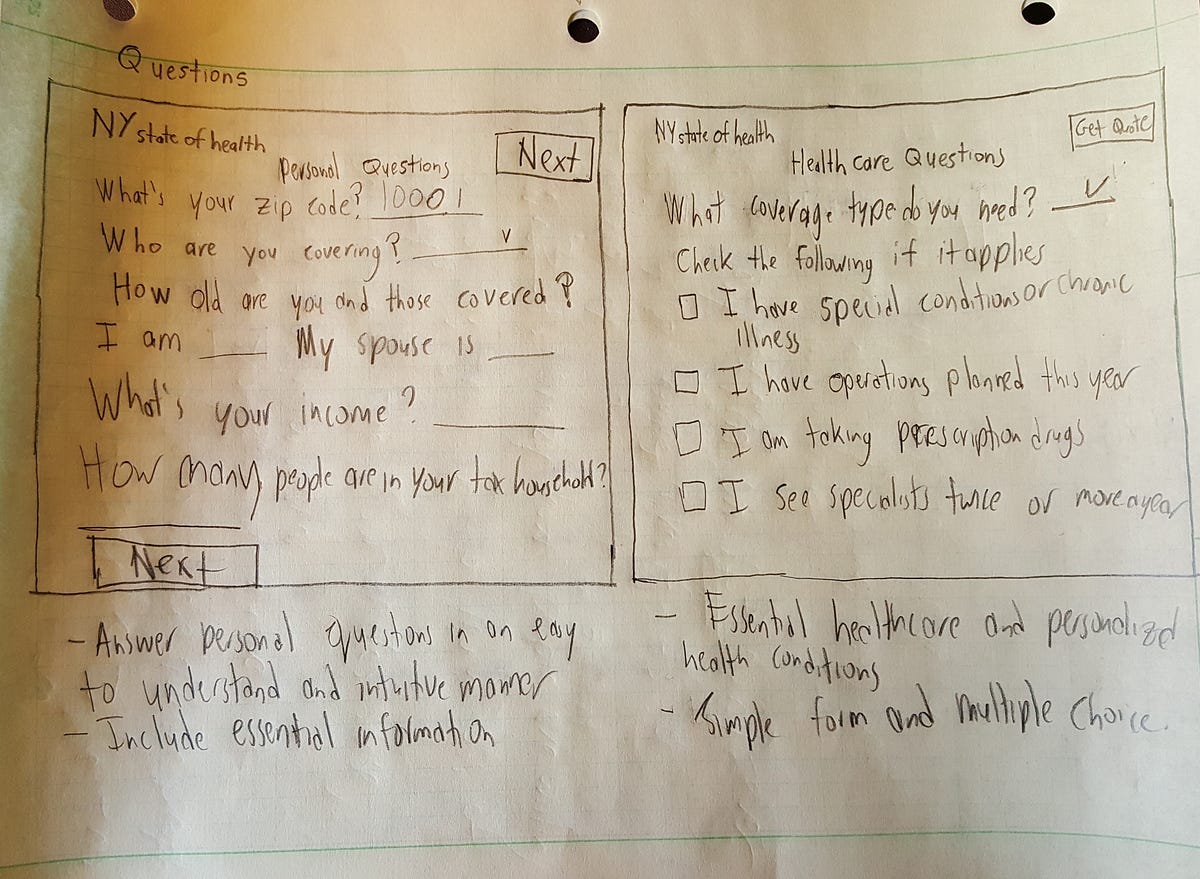 Questions
NY state of health
Next
Personal Questions
What's your zip code? 10001
Who are you covering? v
How old are you and those covered?
I am ___ My spouse is ___
What's your income? ___
How many people are in your tax household?
Next
- Answer personal questions in an easy
to understand and intuitive manner
- Include essential information
NY state of health
Get Quote
Health care Questions
What coverage type do you need? v
Check the following if it applies
I have special conditions or chronic
illness
I have operations planned this year
I am taking prescription drugs
I see specialists twice or more a year
- Essential healthcare and personalized
health conditions
- Simple form and multiple choice.